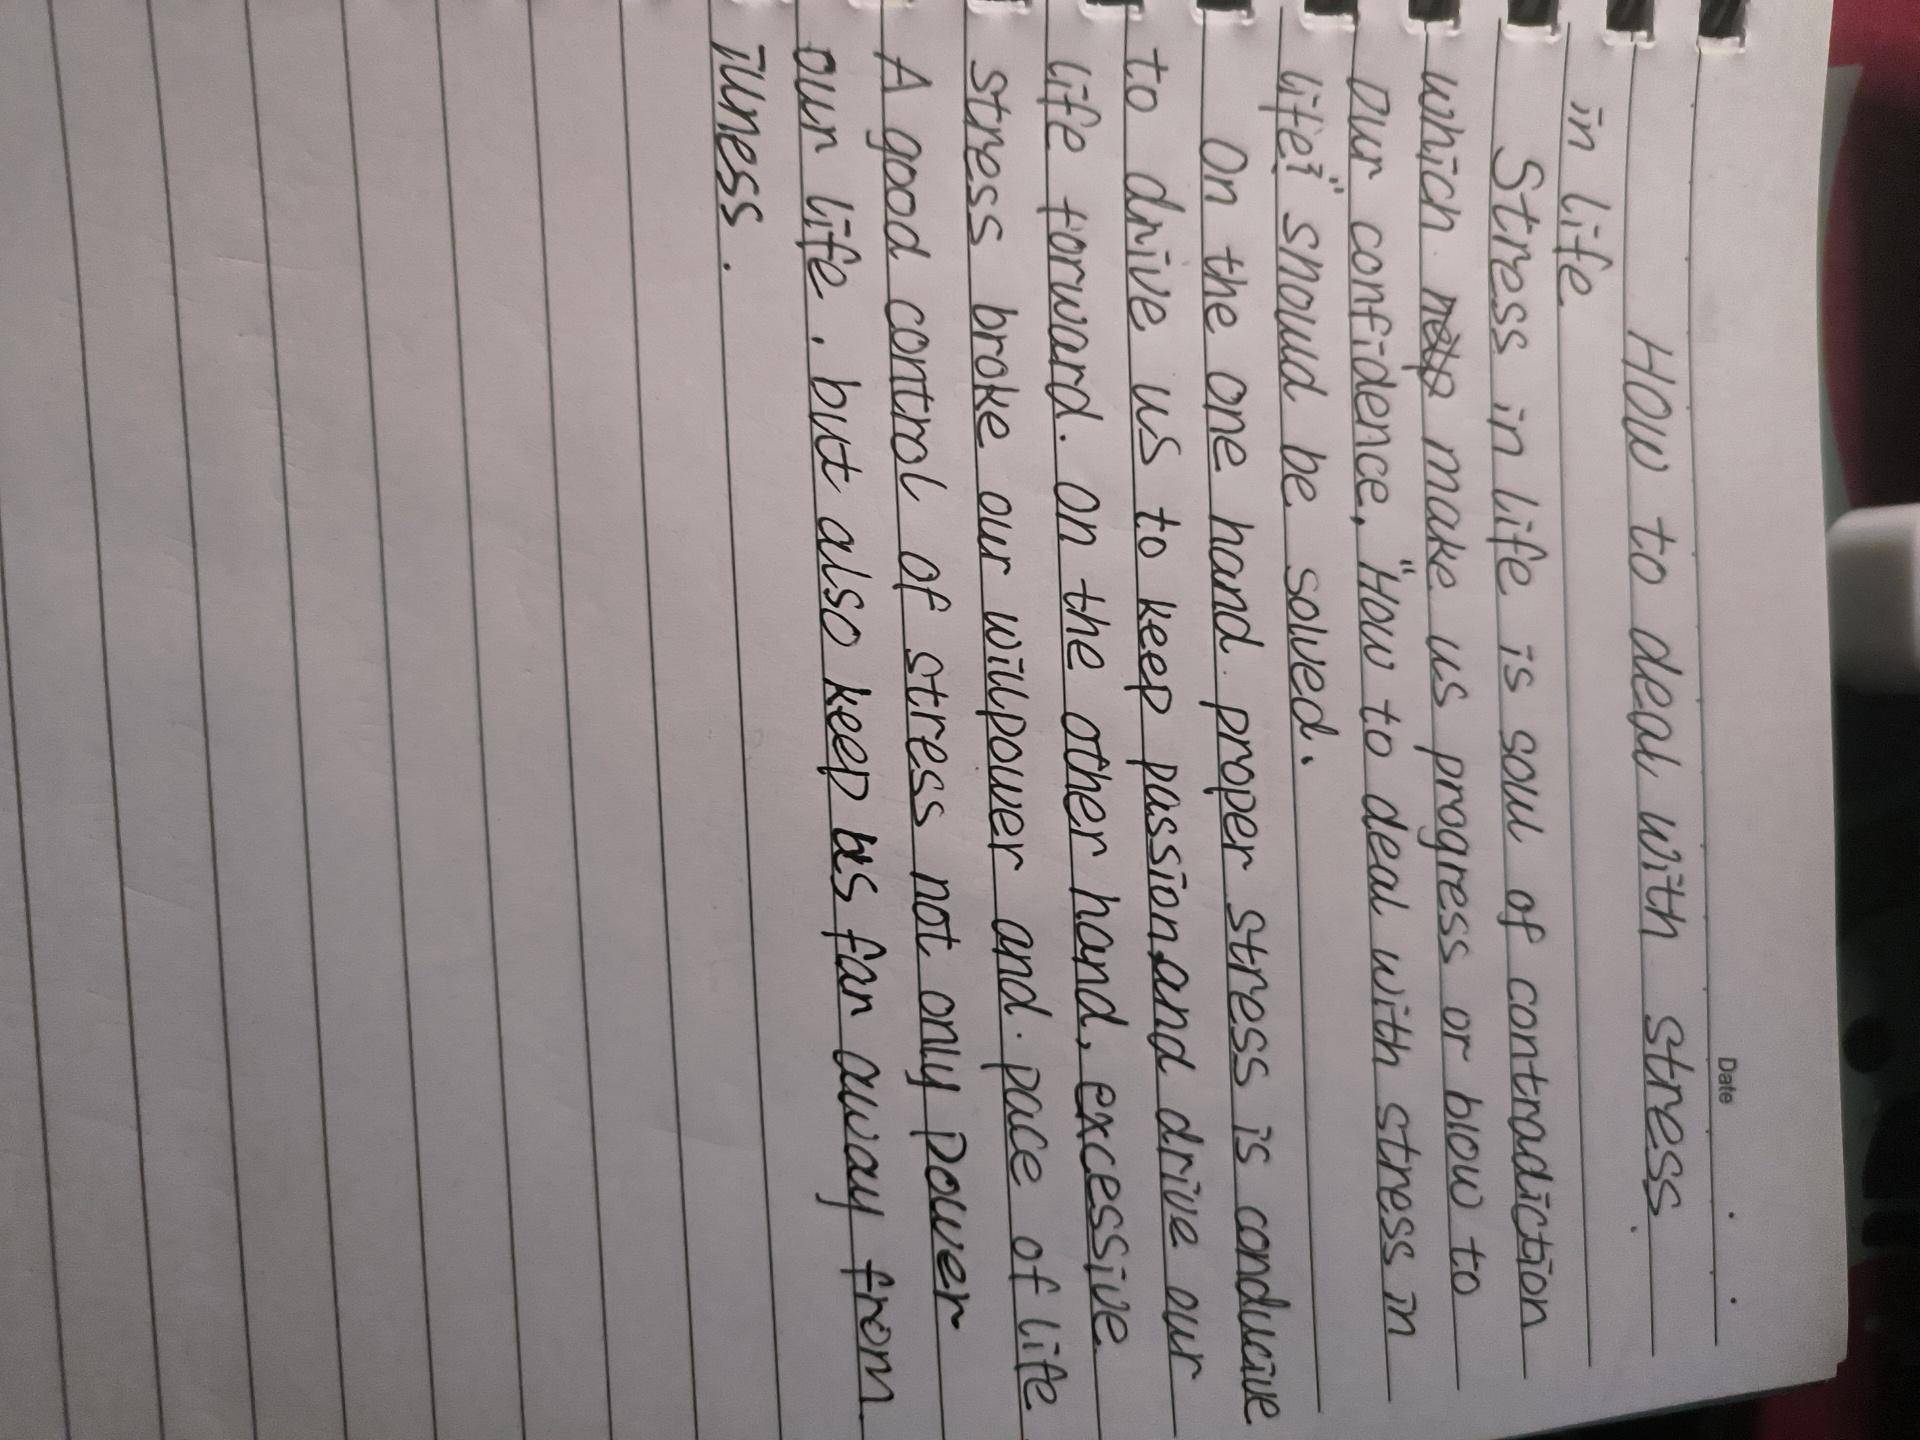 Date
How to deal with stress
in life
Stress in life is soul of contradiction
which make us progress or blow to
our confidence, "How to deal with stress in
life?" should be solved.
On the one hand proper stress is conducive
to drive us to keep passion and drive our
life forward. On the other hand, excessive
stress broke our willpower and pace of life
A good control of stress not only power
our life, but also keep us far away from
illness.